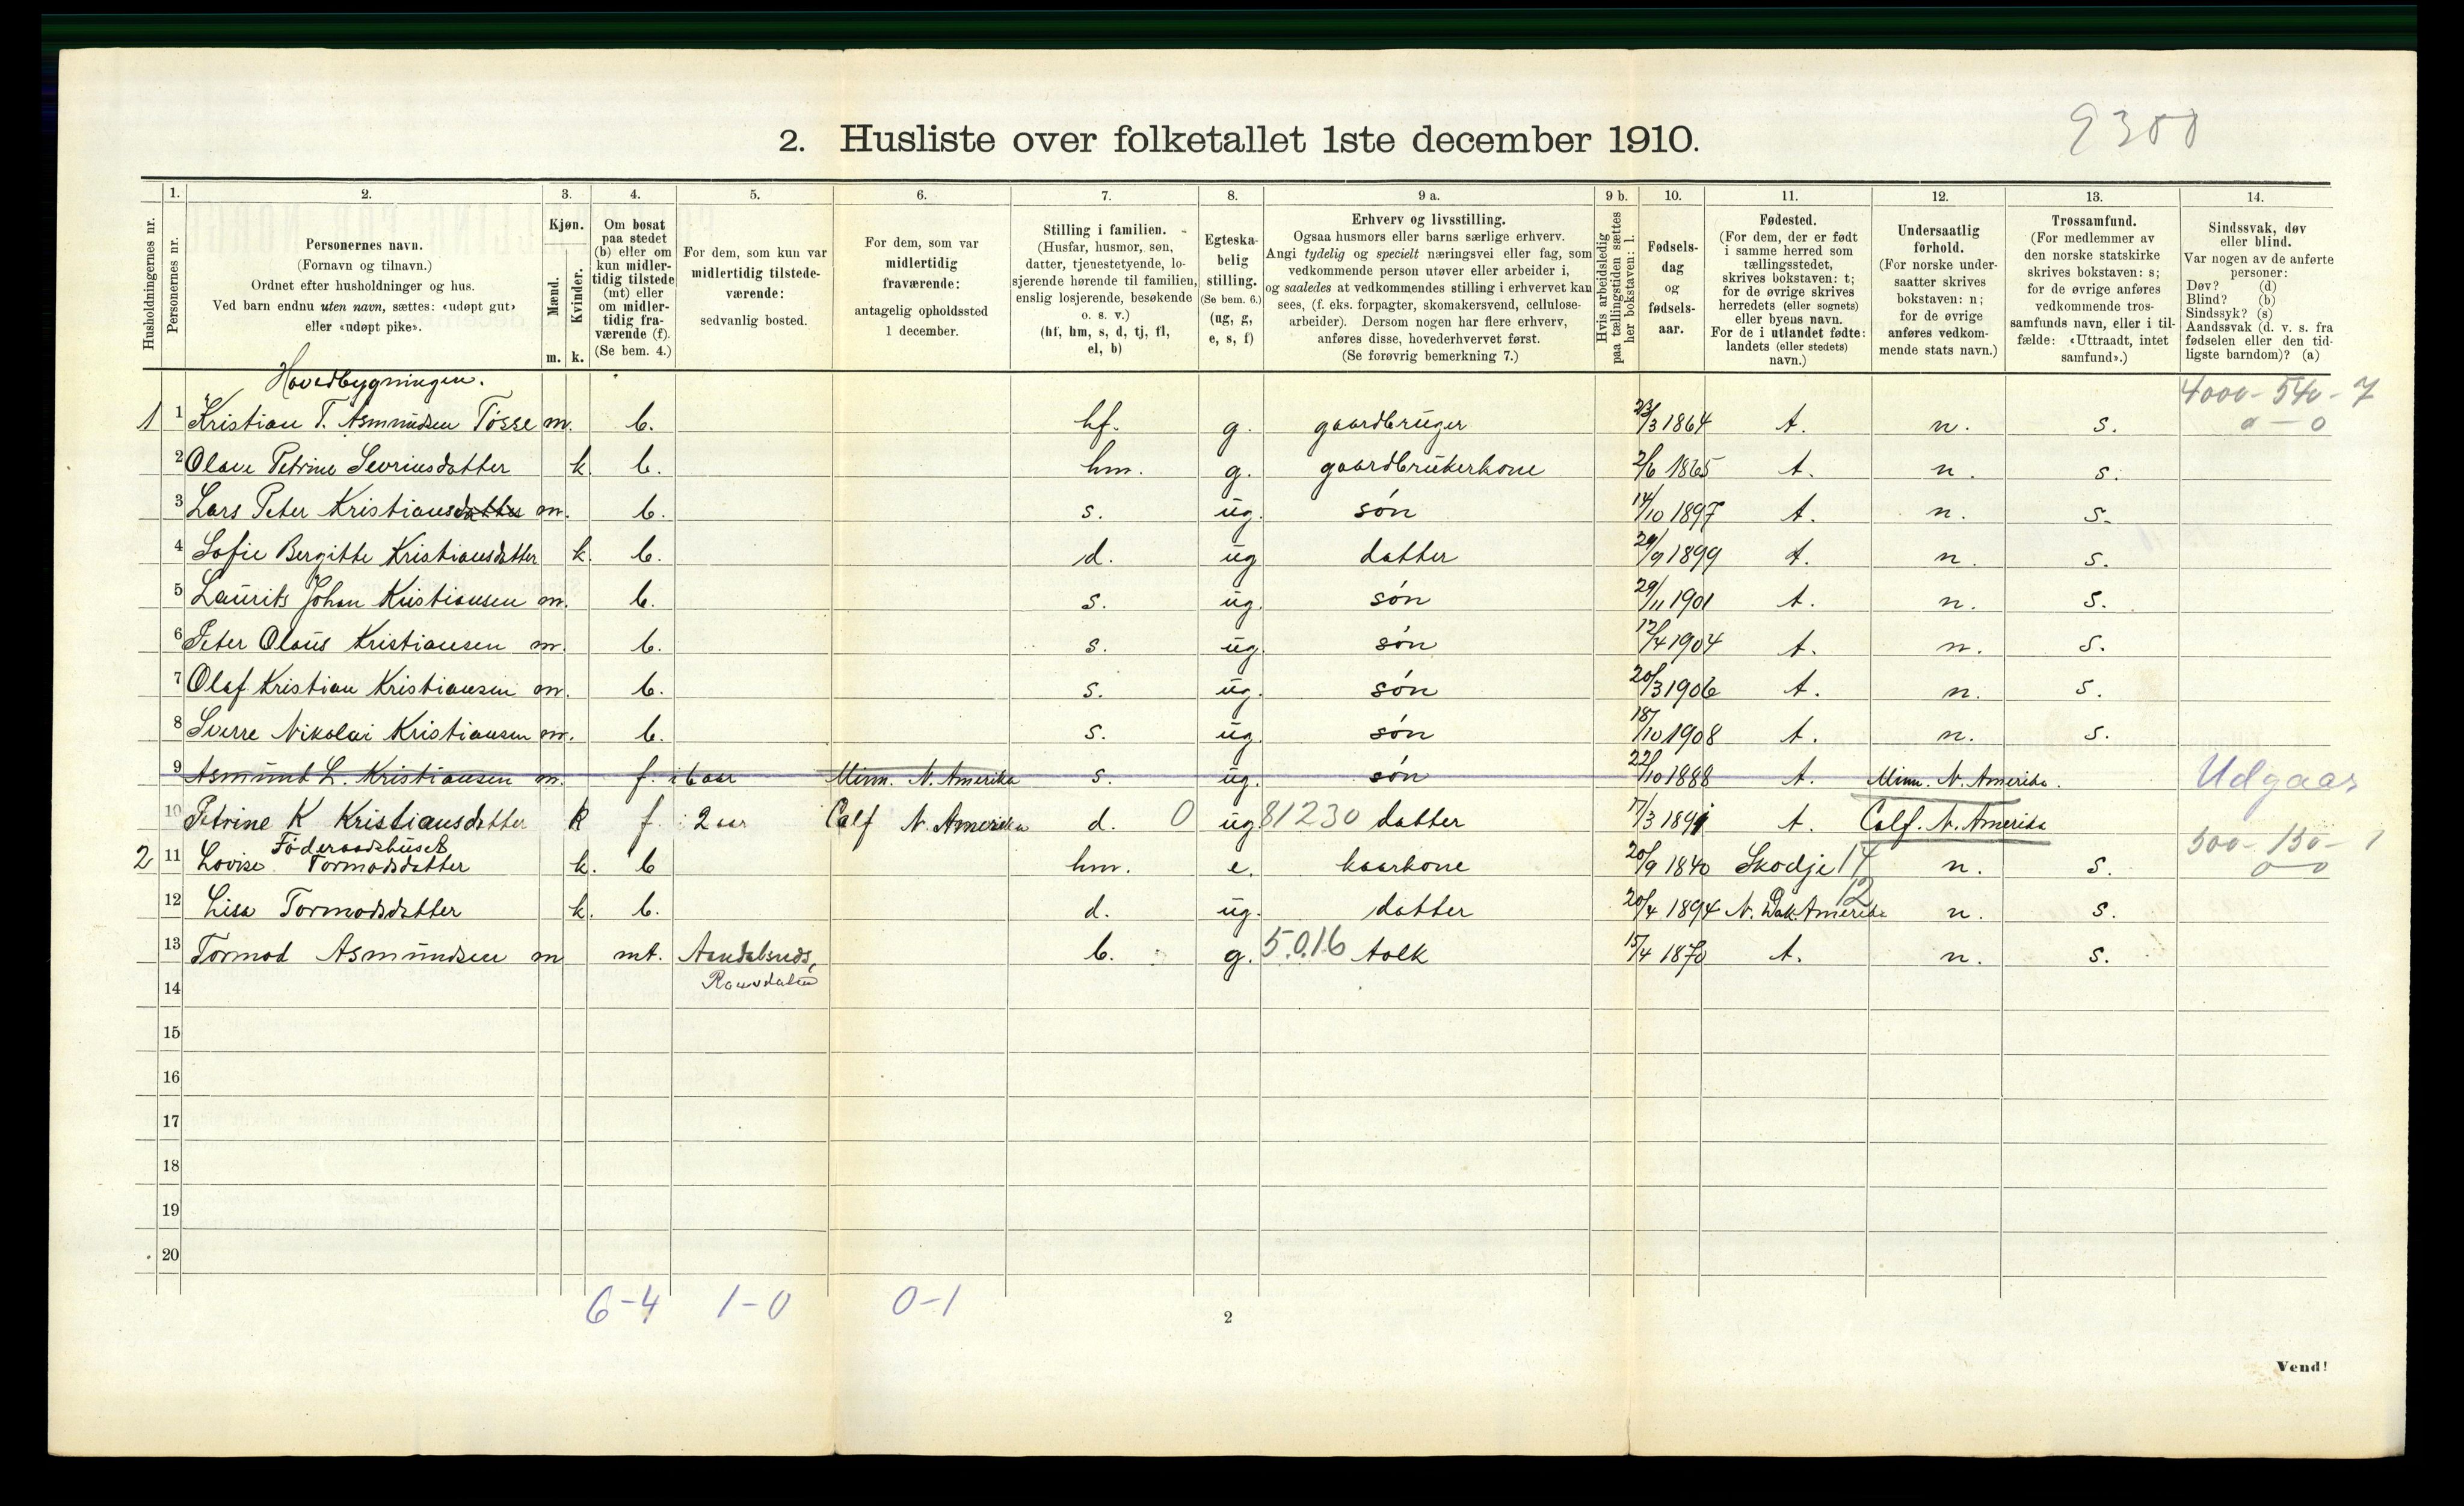 9300
2. Husliste over folketallet 1ste december 1910.
1. 2. 3. 4. 5. 6. 7. 8. 9 a. 9 b. 10. 11. 12. 13. 14.
Husholdningernes nr.
Personernes nr.
Personernes navn.
(Fornavn og tilnavn.)
Ordnet efter husholdninger og hus.
Ved barn endnu uten navn, sættes: «udøpt gut»
eller «udøpt pike».
Kjøn.
Mænd.
Kvinder.
m. k.
Om bosat
paa stedet
(b) eller om
kun midler-
tidig tilstede
(mt) eller
om midler-
tidig fra-
værende (f).
(Se bem. 4.)
For dem, som kun var
midlertidig tilstede-
værende:
sedvanlig bosted.
For dem, som var
midlertidig
fraværende:
antagelig opholdssted
1 december.
Stilling i familien.
(Husfar, husmor, søn,
datter, tjenestetyende, lo-
sjerende hørende til familien,
enslig losjerende, besøkende
o. s. v.)
(hf, hm, s, d, tj, fl,
el, b)
Egteska-
belig
stilling.
(Se bem. 6.)
(ug, g,
e, s, f)
Erhverv og livsstilling.
Ogsaa husmors eller barns særlige erhverv.
Angi tydelig og specielt næringsvei eller fag, som
vedkommende person utøver eller arbeider i,
og saaledes at vedkommendes stilling i erhvervet kan
sees, (f. eks. forpagter, skomakersvend, cellulose-
arbeider). Dersom nogen har flere erhverv,
anføres disse, hovederhvervet først.
(Se forøvrig bemerkning 7.)
Hvis arbeidsledig
paa tællingstiden sættes
her bokstaven: l.
Fødsels-
dag
og
fødsels-
aar.
Fødested.
(For dem, der er født
i samme herred som
tællingsstedet,
skrives bokstaven: t;
for de øvrige skrives
herredets (eller sognets)
eller byens navn.
For de i utlandet fødte:
landets (eller stedets)
navn.)
Undersaatlig
forhold.
(For norske under-
saatter skrives
bokstaven: n;
for de øvrige
anføres vedkom-
mende stats navn.)
Trossamfund.
(For medlemmer av
den norske statskirke
skrives bokstaven: s;
for de øvrige anføres
vedkommende tros-
samfunds navn, eller i til-
fælde: «Uttraadt, intet
samfund».)
Sindssvak, døv
eller blind.
Var nogen av de anførte
personer:
Døv? (d)
Blind? (b)
Sindssyk? (s)
Aandssvak (d. v. s. fra
fødselen eller den tid-
ligste barndom)? (a)
Hovedbygningen.
4000 - 540 - 7
1 1 Kristian T. Asmundsen Tøsse m. b. hf. g. gaardbruger 23/3 1864 t. n. s. 0 - 0
2 Olave Petrine Sevrinsdatter k b. hm. g. gaardbrukerkone 2/6 1865 t. n. s.
3 Lars Peter Kristiansdatter m. b. s. ug. søn 14/10 1897 t. n. s.
4 Sofie Bergitte Kristiansdatter k. b. d. ug datter 29/9 1899 t. n. s.
5 Laurits Johan Kristiansen m. b. s. ug. søn 29/11 1901 t. n. s.
6 Peter Olaus Kristiansen m. b. s. ug. søn 12/4 1904 t. n. s.
7 Olaf Kristian Kristiansen m. b. s. ug. søn 20/3 1906 t. n. s.
8 Sverre Nikolai Kristiansen m. b. s. ug. søn 18/10 1908 t. n. s.
9 Asmund L. Kristiansen m. f. i 6 aar Minn. N. Amerika s. ug. søn 22/10 1888 t. Minn. N. Amerika. Udgaar
10 Petrine K Kristiansdatter k f. 2 aar Calf N. Amerika d. 0 ug 81230 datter 17/3 1891 t. Calf. N. Amerika
Føderaadshuset
500 - 150 - 1
2 11 Lovise Tormodsdatter k. b hm. e. kaarkone 20/9 1840 Skodje 17 n. s. 0 - 0
12
12 Lisa Tormodsdatter k. b. d. ug. datter 20/4 1894 N. Dak. Amerika n. s.
13 Tormod Asmundsen m mt. Aandalsnes, b. g. 5.016 tolk 15/4 1870 t. n. s.
14 Romsdalen
15
16
17
18
19
20
6-4 1-0 0-1
2
Vend!